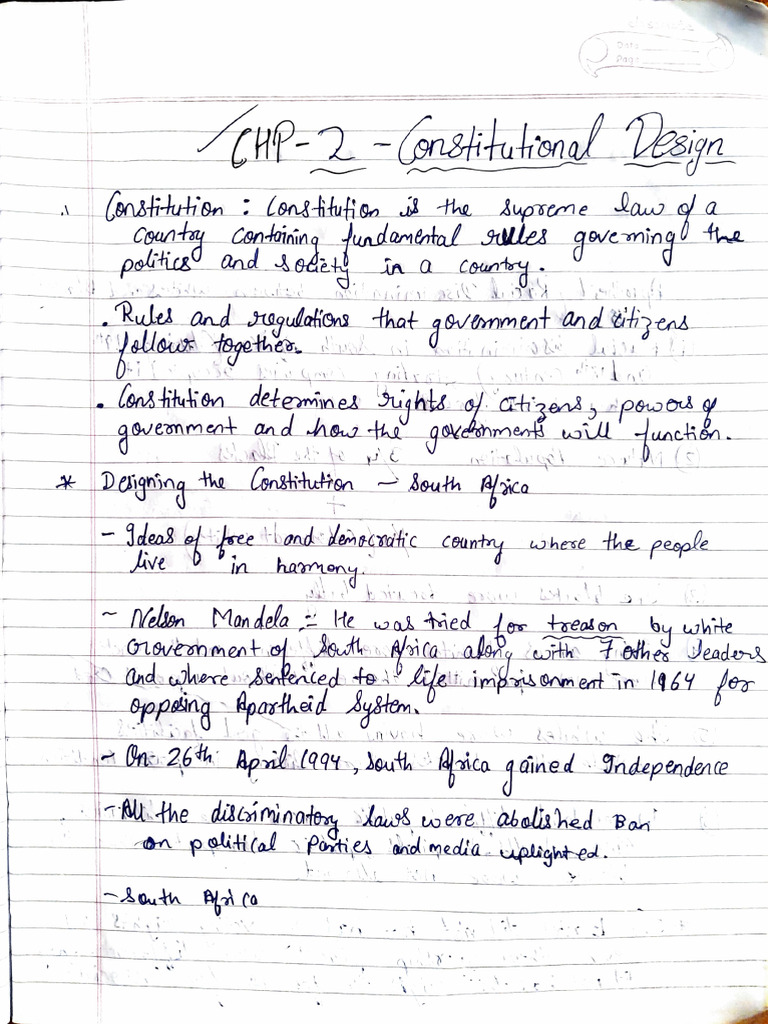 Date
Page
CHP-2 - Constitutional Design
Constitution : Constitution is the supreme law of a
country containing fundamental rules governing the
politics and society in a country.
• Rules and regulations that government and citizens
follow together.
• Constitution determines rights of citizens, powers of
government and how the governments will function.
* Designing the Constitution - South Africa
- Ideas of free and democratic country where the people
live in harmony.
- Nelson Mandela :- He was tried for treason by white
Government of South Africa along with 7 other leaders
and where sentenced to life imprisonment in 1964 for
opposing Apartheid System.
- On 26th April 1994, South Africa gained Independence
- All the discriminatory laws were abolished Ban
on political Parties and media uplighted.
- South Africa